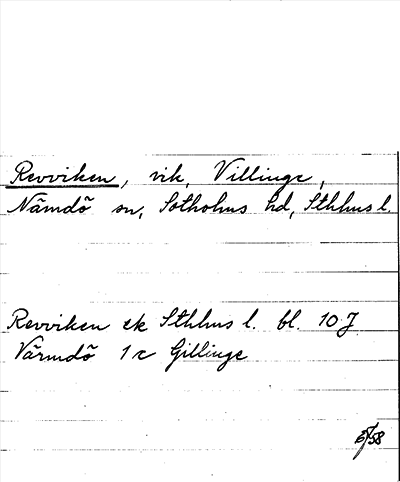 Revviken, vik, Villinge,
Nämdö sn, Sotholms hd, Sthlms l.
Revviken ek Sthlms l. bl. 10 J
Värmdö 1 c Gillinge
58